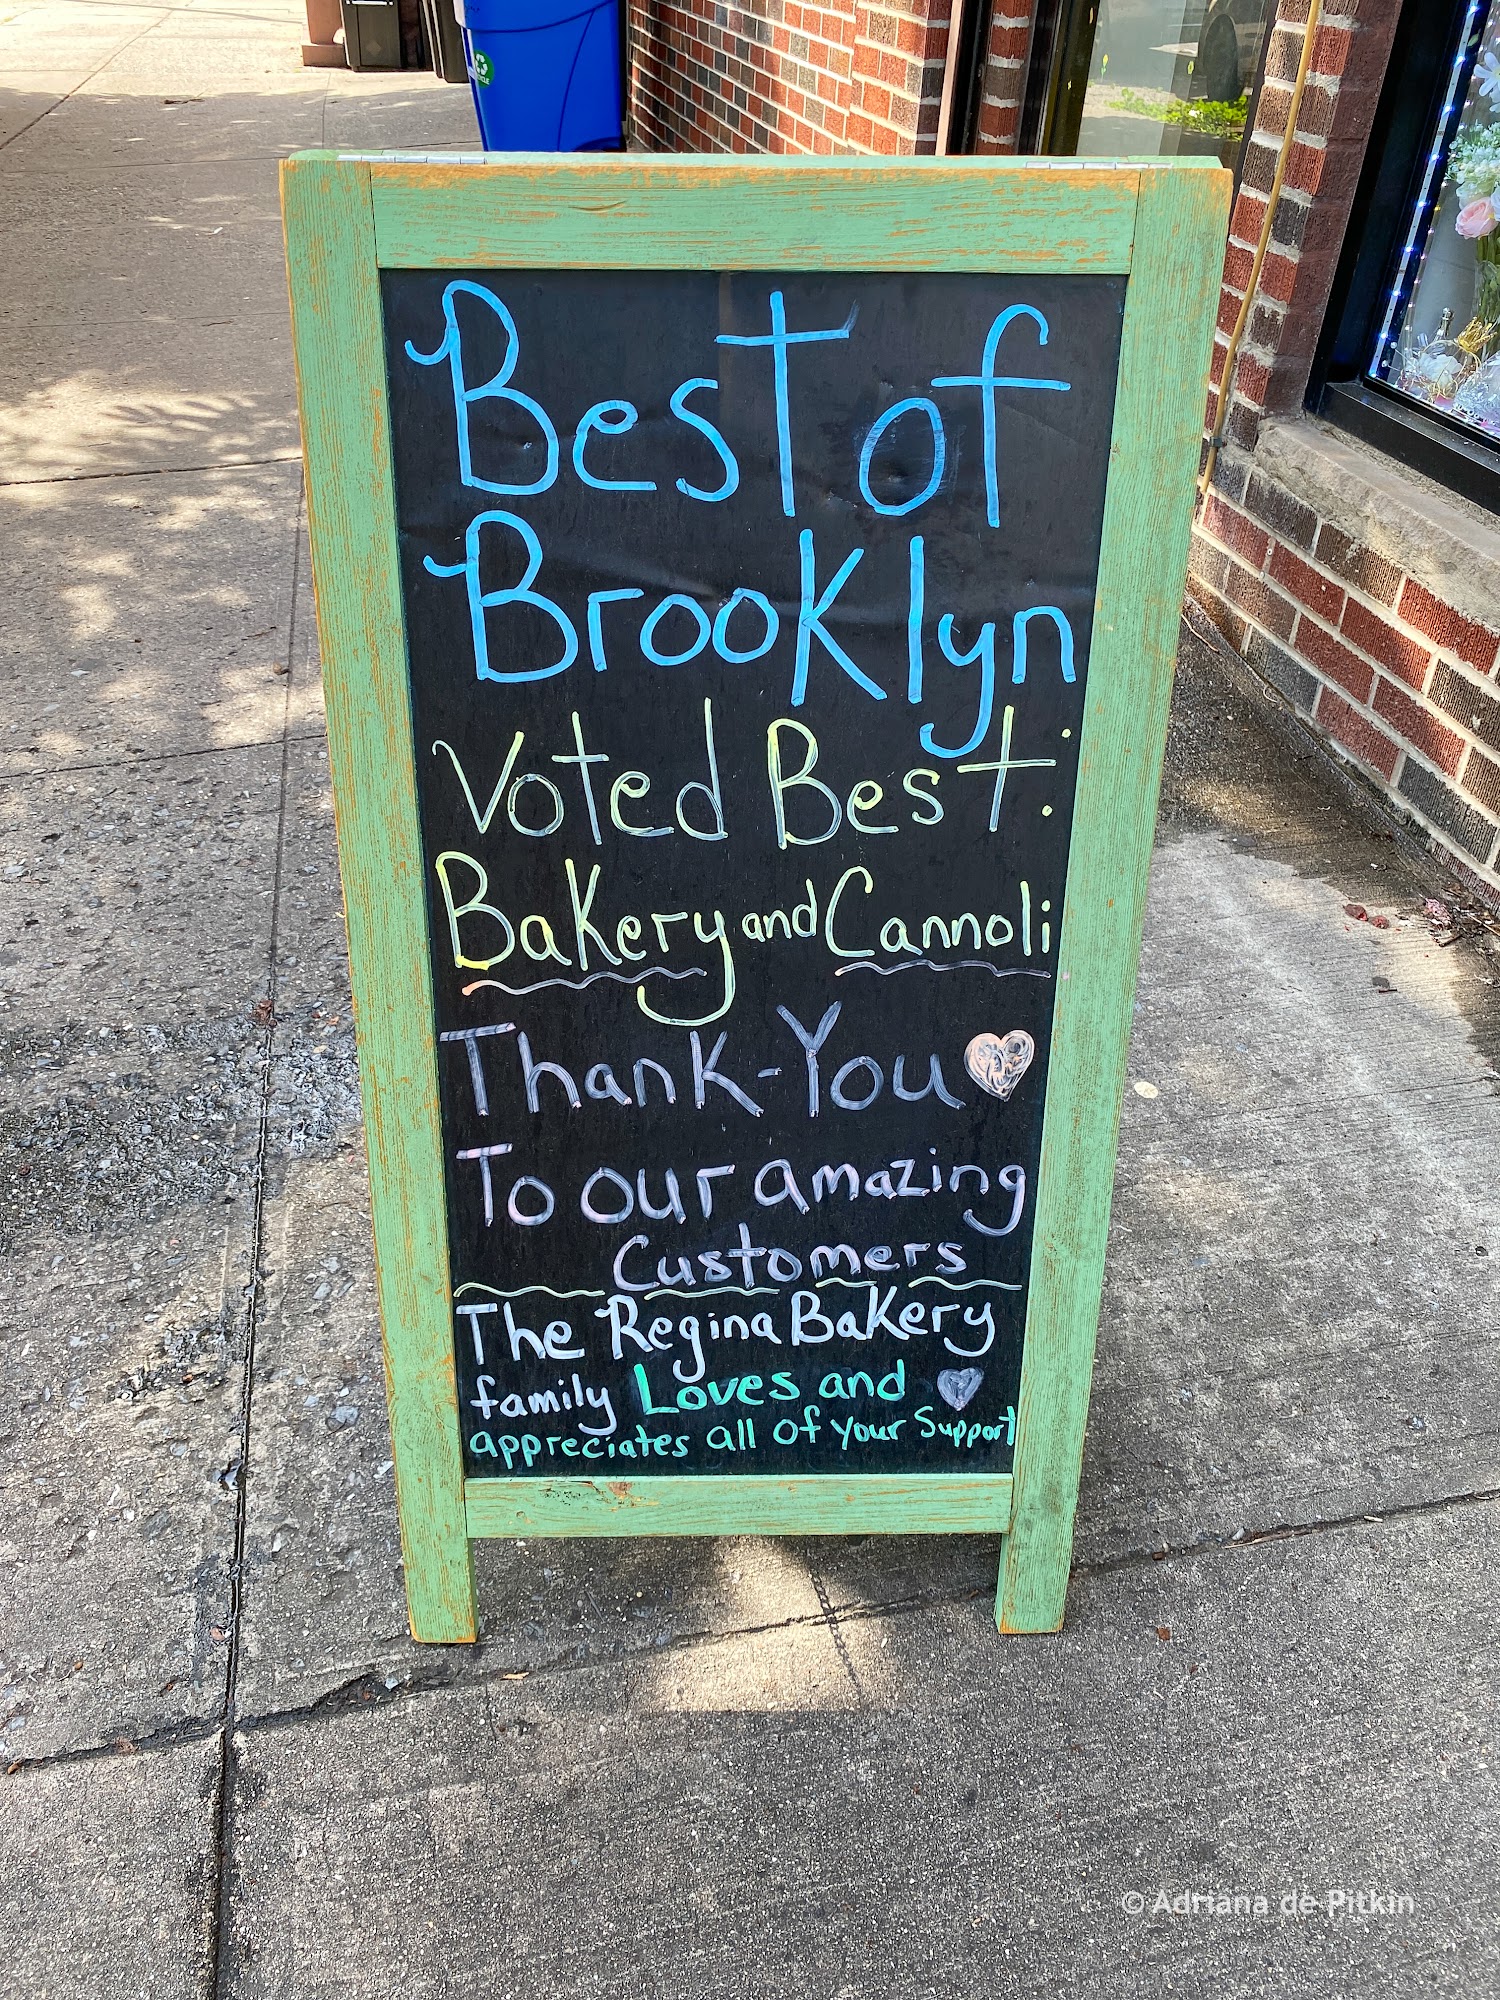 Best of
Brooklyn
Voted Best:
Bakery and Cannoli
Thank-You
To our amazing
Customers
The Regina Bakery
family Loves and
appreciates all of your Support
© Adriana de Pitkin